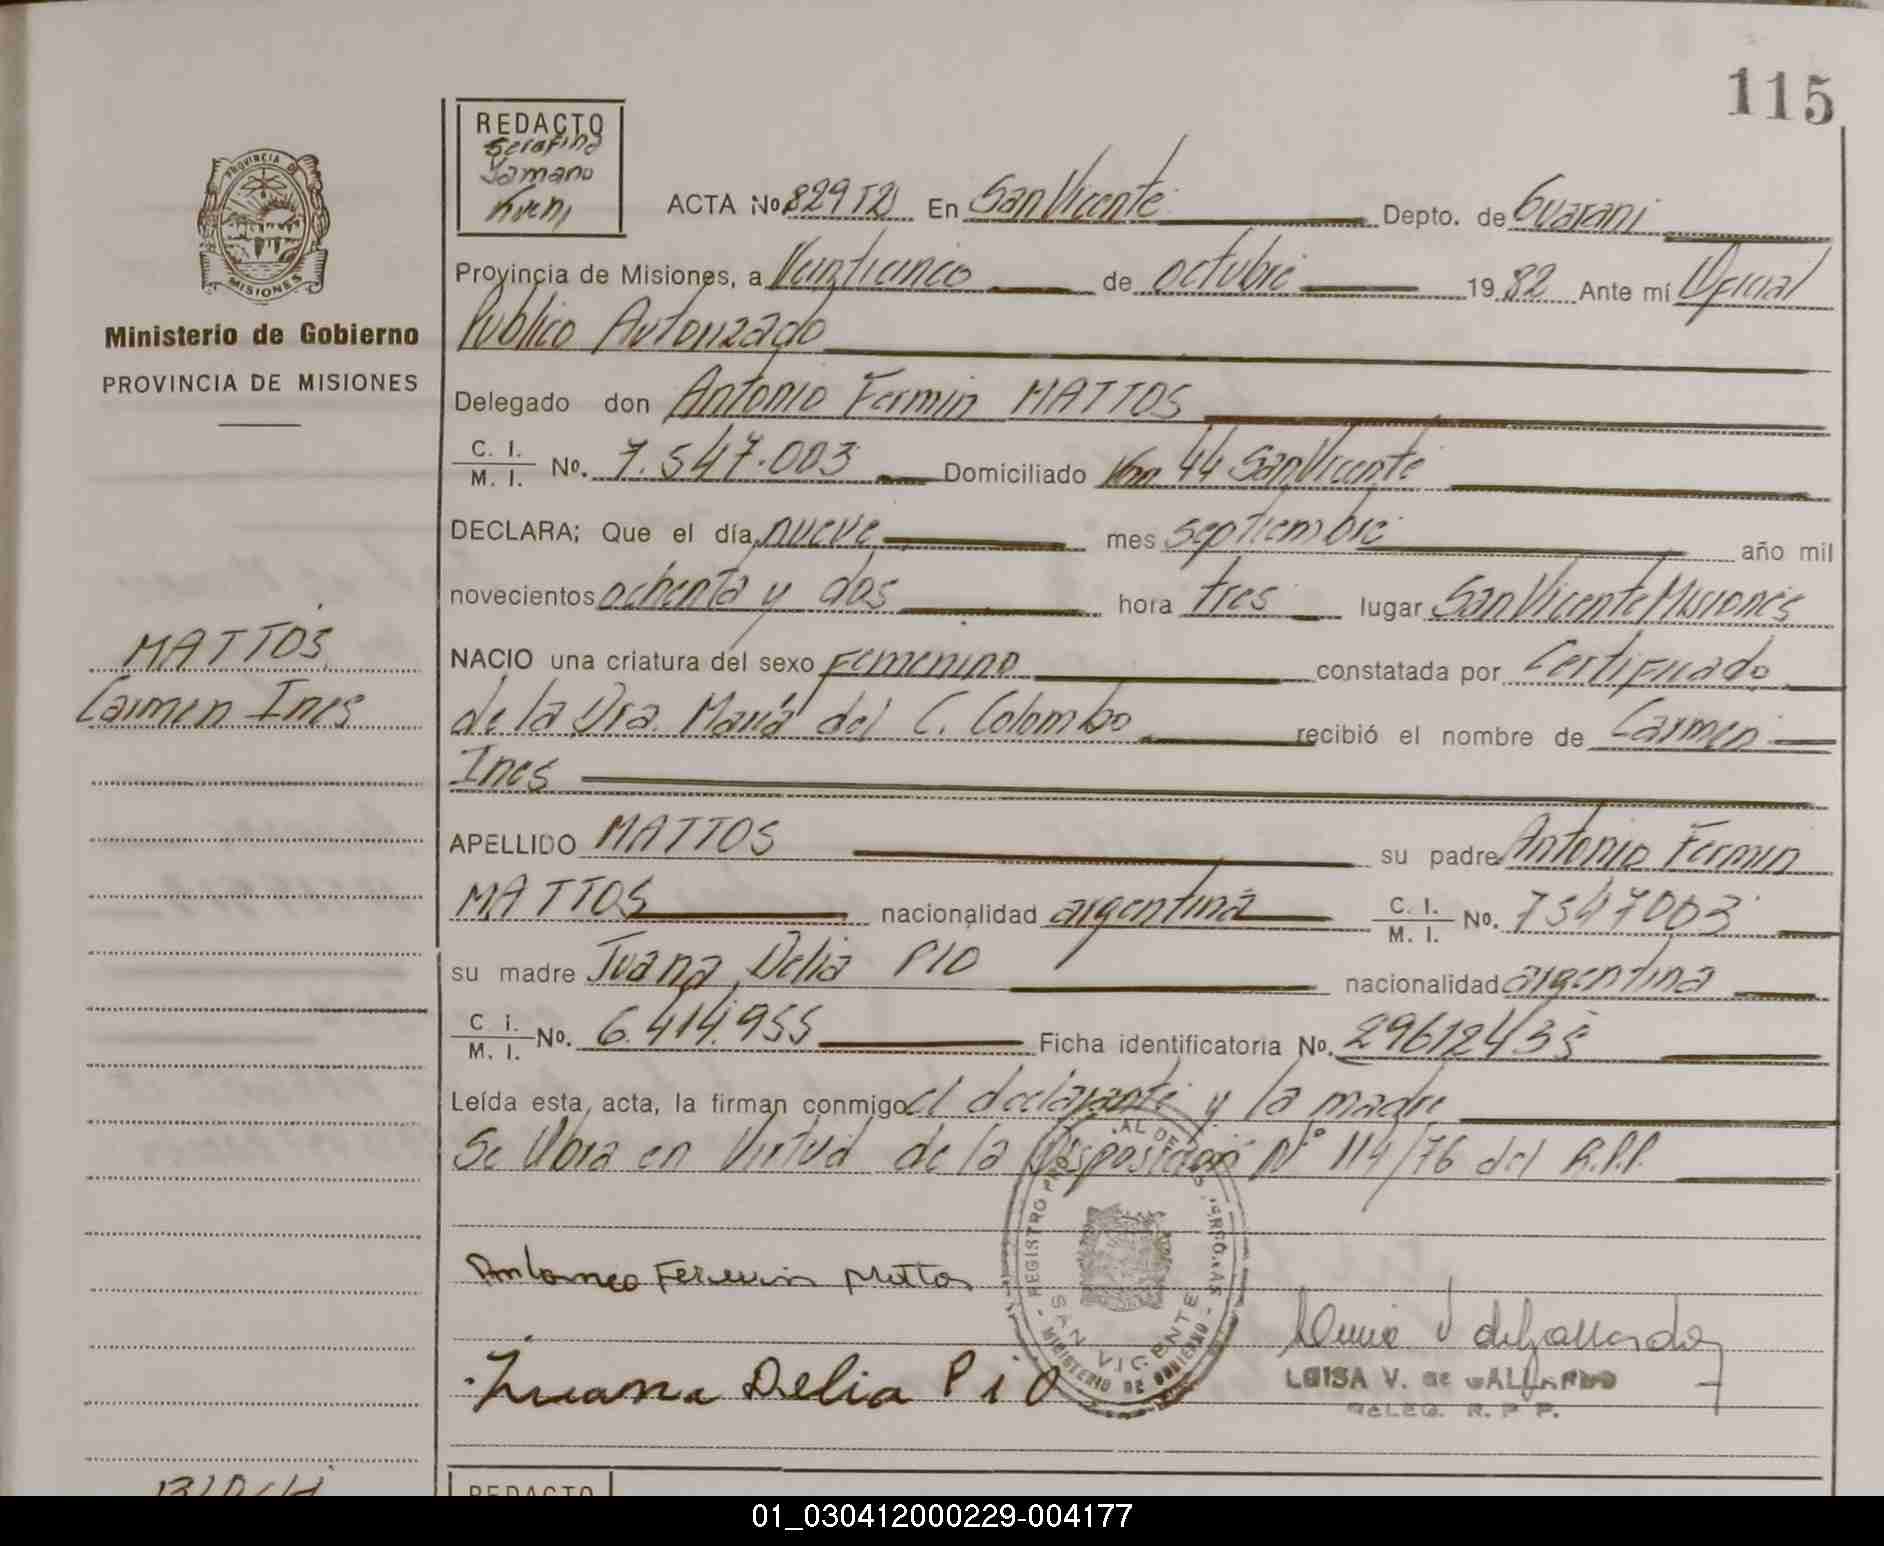 115
REDACTO
Serafina
Yamano
Kueni
PROVINCIA DE
MISIONES
Ministerio de Gobierno
PROVINCIA DE MISIONES
ACTA No. 829 T2 En San Vicente Depto. de Guarani
Provincia de Misiones, a Veinticinco de octubre 1982 Ante mí Oficial
Publico Autorizado
Delegado don Antonio Fermin MATTOS
C. I. / M. I. No. 7.547.003 Domiciliado Km 44 San Vicente
DECLARA; Que el día nueve mes septiembre año mil
novecientos ochenta y dos hora tres lugar San Vicente Misiones
MATTOS
Carmen Ines
NACIO una criatura del sexo Femenino constatada por Certificado
de la Dra. Maria del C. Colombo recibió el nombre de Carmen
Ines
APELLIDO MATTOS su padre Antonio Fermin
MATTOS nacionalidad argentina C. I. / M. I. No. 7547003
su madre Juana Delia PIO nacionalidad argentina
C. i. / M. I. No. 6.414.955 Ficha identificatoria No. 29612435
Leída esta, acta, la firman conmigo el declarante y la madre
Se labra en Virtud de la Disposicion Nº 114/76 del R.P.P.
SAN VICENTE
MINISTERIO DE GOBIERNO
Antonio Fermin Mattos
Juana Delia Pio
LUISA V. de GALLARDO
DELEG. R. P. P.
REDACTO
01_030412000229-004177